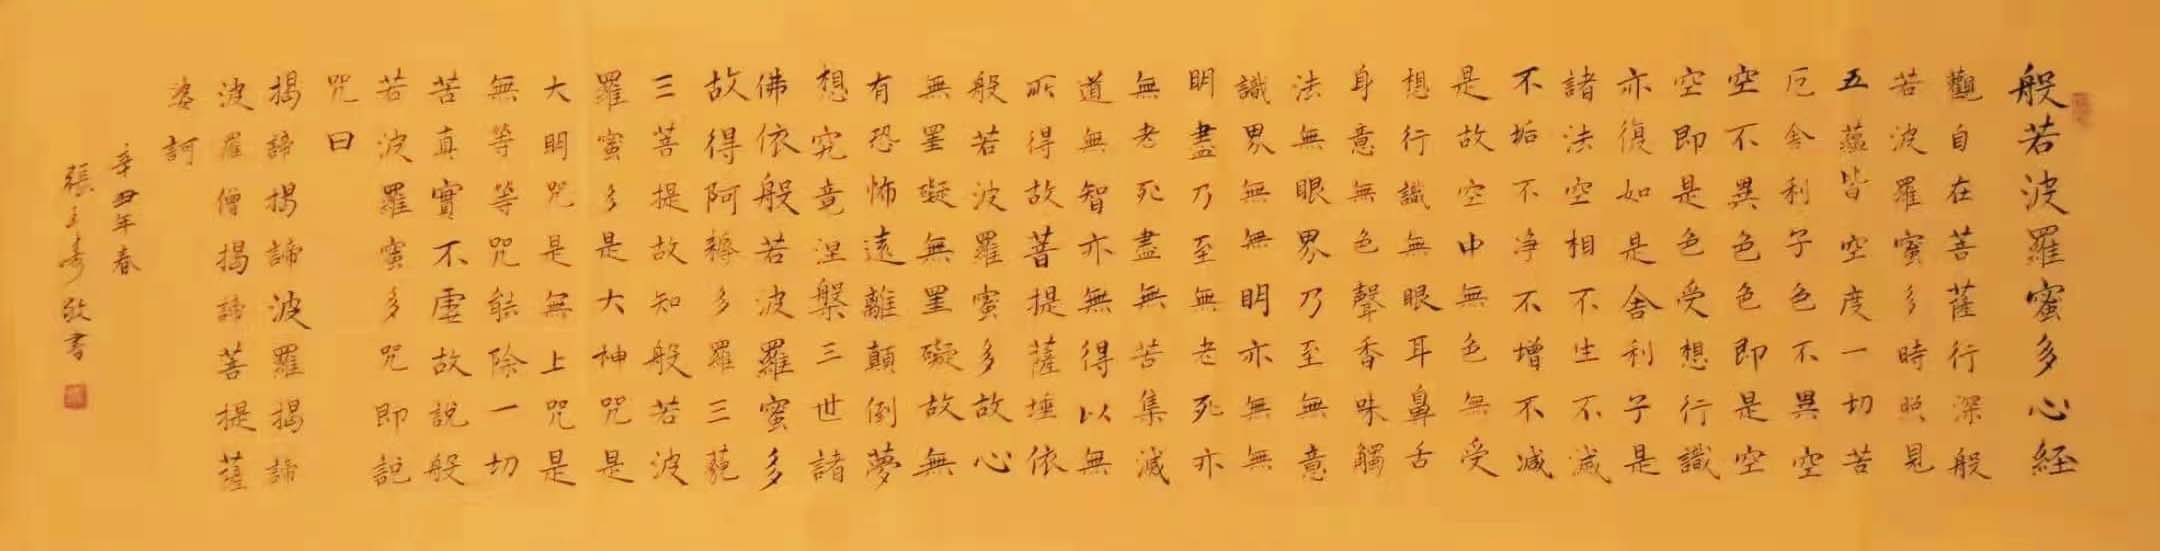 般若波羅蜜多心経
觀自在菩薩行深般
若波羅蜜多時照見
五蘊皆空度一切苦
厄舍利子色不異空
空不異色色即是空
空即是色受想行識
亦復如是舍利子是
諸法空相不生不滅
不垢不淨不增不減
是故空中無色無受
想行識無眼耳鼻舌
身意無色聲香味觸
法無眼界乃至無意
識界無無明亦無無
明盡乃至無老死亦
無老死盡無苦集滅
道無智亦無得以無
所得故菩提薩埵依
般若波羅蜜多故心
無罣礙無罣礙故無
有恐怖遠離顛倒夢
想究竟涅槃三世諸
佛依般若波羅蜜多
故得阿耨多羅三藐
三菩提故知般若波
羅蜜多是大神咒是
大明咒是無上咒是
無等等咒能除一切
苦真實不虛故說般
若波羅蜜多咒即説
咒曰
揭諦揭諦波羅揭諦
波羅僧揭諦菩提薩
婆訶
辛丑年春
張 壽敬書